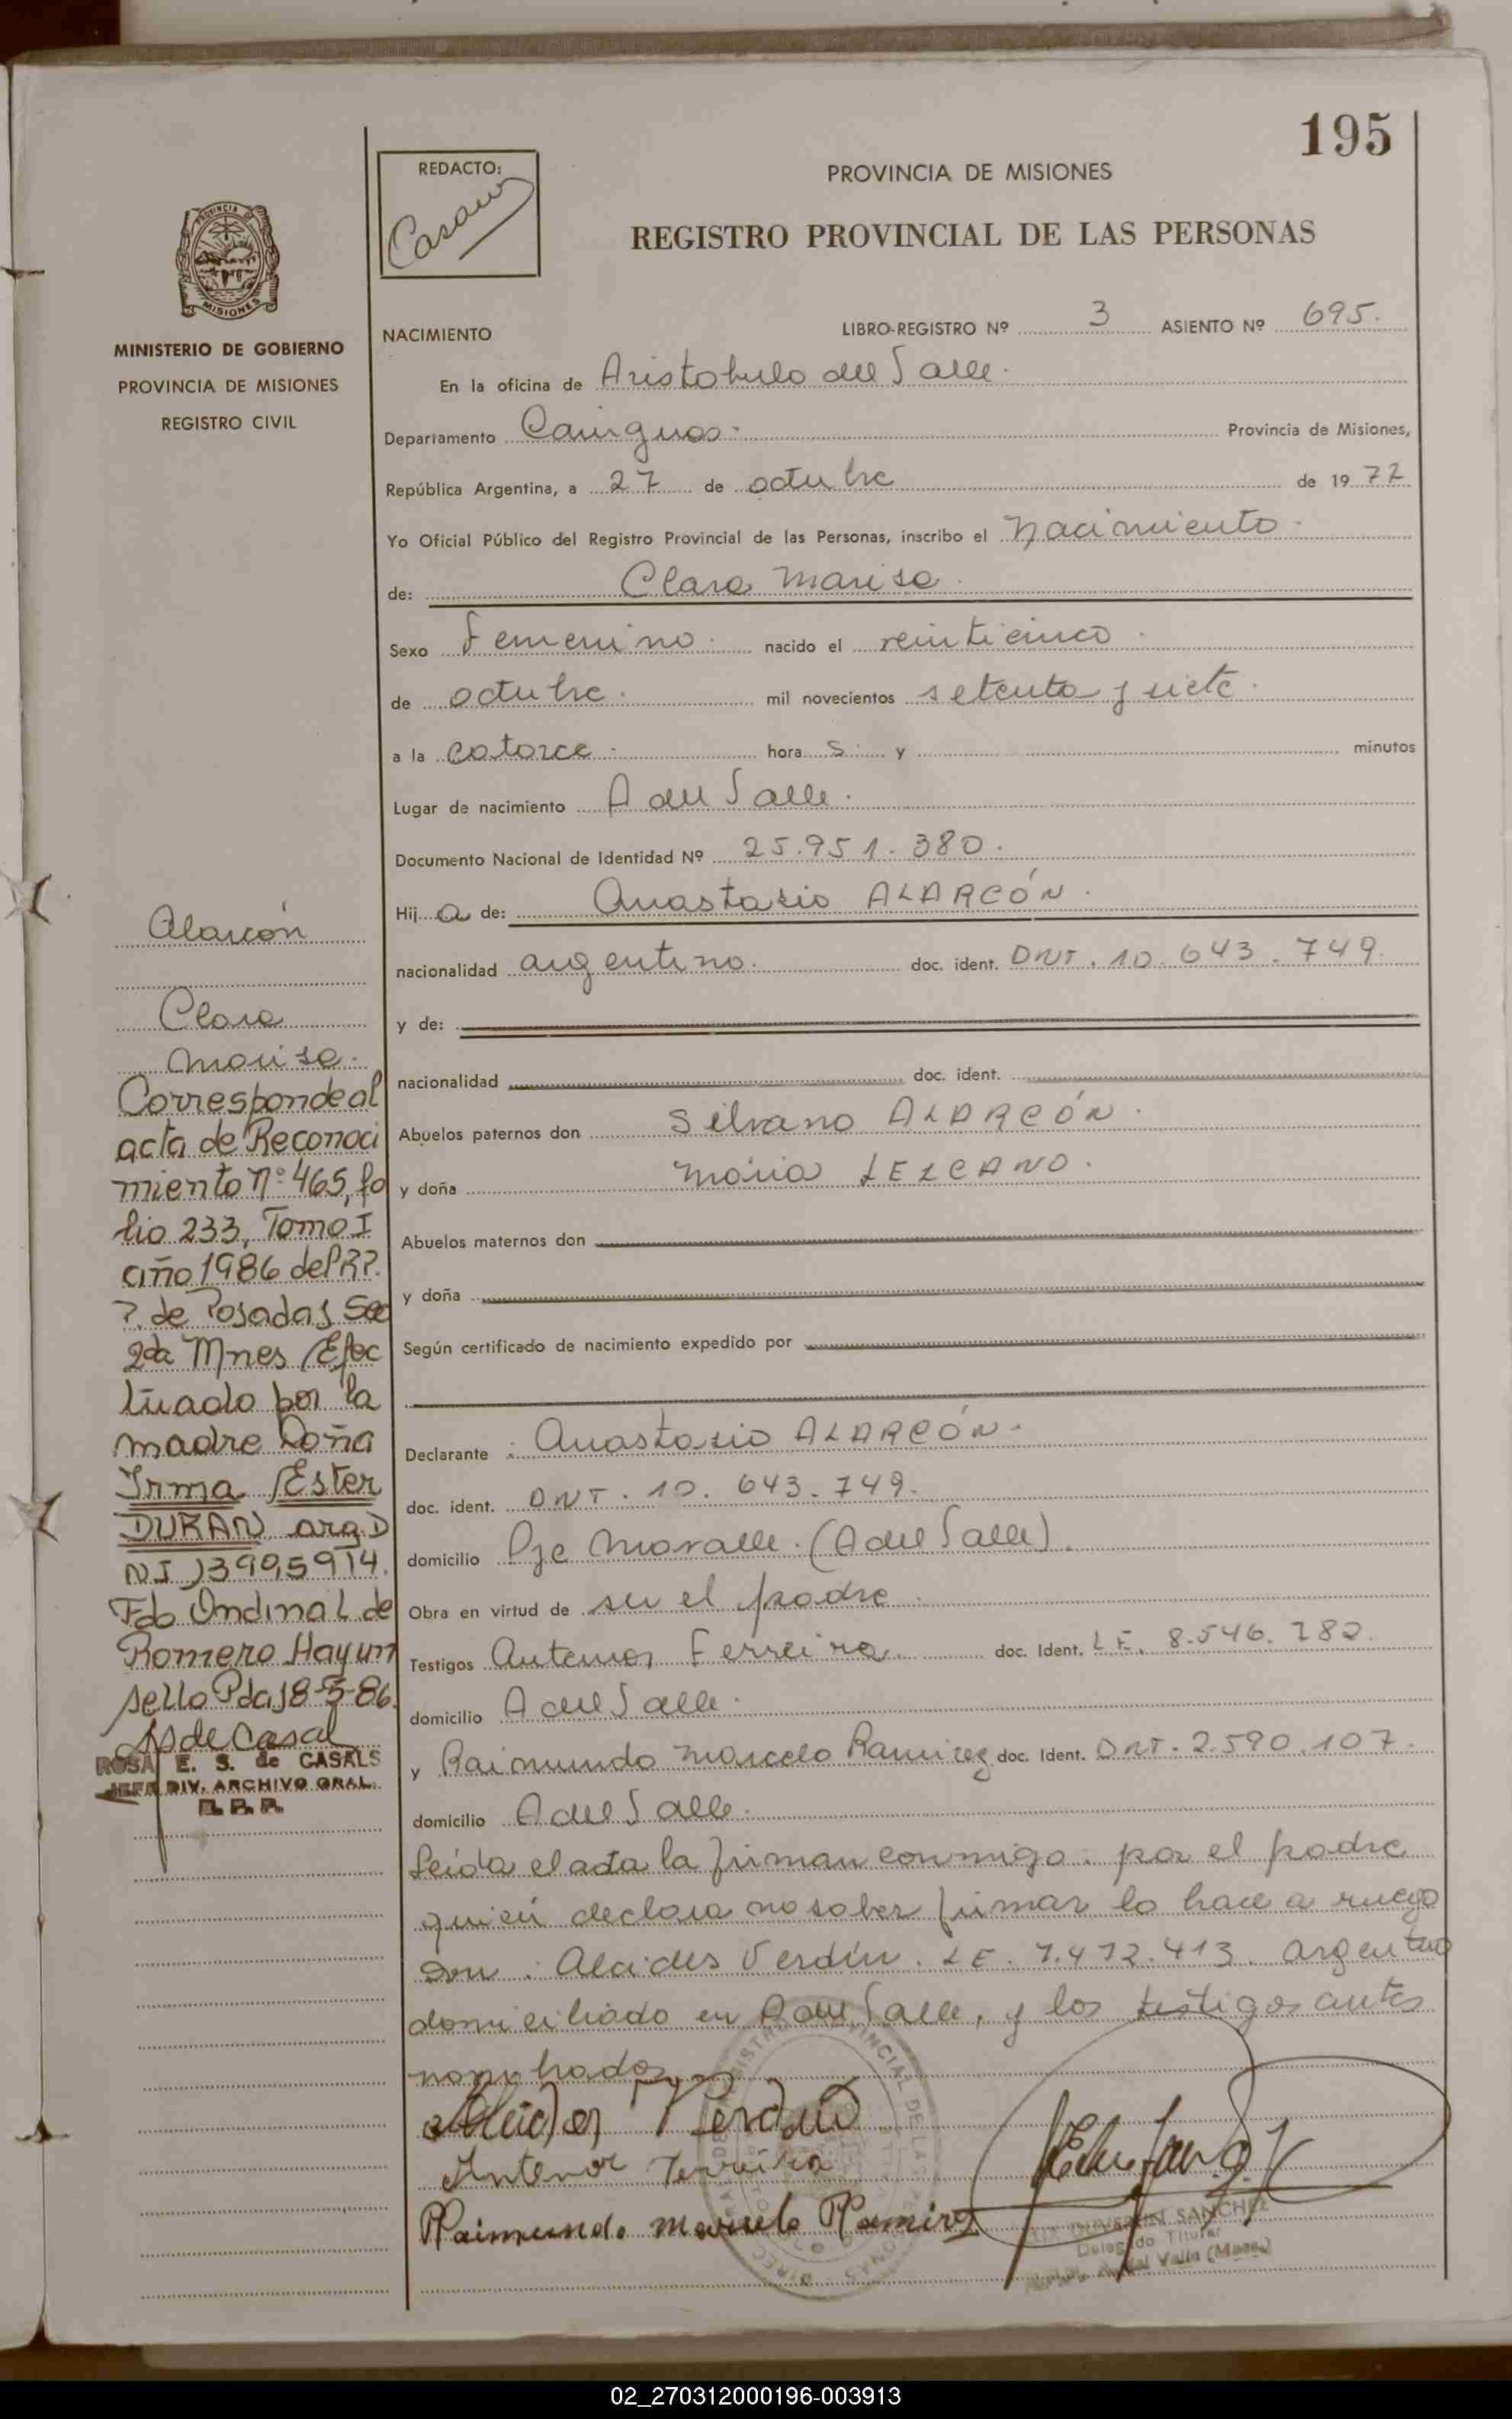 195
REDACTO:
PROVINCIA DE MISIONES
REGISTRO PROVINCIAL DE LAS PERSONAS
MISIONES
MINISTERIO DE GOBIERNO
PROVINCIA DE MISIONES
REGISTRO CIVIL
NACIMIENTO LIBRO-REGISTRO Nº 3 ASIENTO Nº 695.
En la oficina de Aristobulo del Valle.
Departamento Cainguas. Provincia de Misiones,
República Argentina, a 27 de octubre de 19 77
Yo Oficial Público del Registro Provincial de las Personas, inscribo el Nacimiento.
de: Clara Marisa.
Sexo Femenino. nacido el veinticinco.
de octubre. mil novecientos setenta y siete.
a la catorce. hora s. y minutos
Lugar de nacimiento A del Valle.
Documento Nacional de Identidad Nº 25.951.380.
Hij a de: Anastasio ALARCÓN.
nacionalidad argentino. doc. ident. DNI. 10.643.749.
y de:
nacionalidad doc. ident.
Abuelos paternos don Silvano ALARCÓN.
y doña María LEZCANO.
Abuelos maternos don
y doña
Según certificado de nacimiento expedido por
Declarante : Anastasio ALARCÓN.
doc. ident. DNI. 10.643.749.
domicilio Pje (A del Valle).
Obra en virtud de ser el padre.
Testigos Antenor Ferreira. doc. Ident. LE. 8.546.782.
domicilio A del Valle.
y Raimundo Marcelo Ramirez doc. Ident. DNI. 2.590.107.
domicilio A del Valle.
Leída el acta la firman conmigo: por el padre
quien declara no saber firmar lo hace a ruego
Don: Alcides Verdún. LE. 7.472.413. argentino
domiciliado en A del Valle, y los testigos antes
nombrados
Alcides Verdun
Antenor Ferreira
Raimundo Marcelo Ramirez
SANCHEZ
Delegado Titular
Alarcón
Clara
Marisa.
Corresponde al
acta de Reconoci
miento Nº 465, fo
lio 233, Tomo I
año 1986 del R.P.
P. de Posadas Sec
2da Mnes Efec
tuado por la
madre Doña
Irma Ester
DURAN arg. D
NI 13995914.
Fdo Ondina L de
Romero Hayun
sello Pdas 8-5-86.
ROSA E. S. de CASALS
JEFE DIV. ARCHIVO GRAL.
R.P.P.
02_270312000196-003913